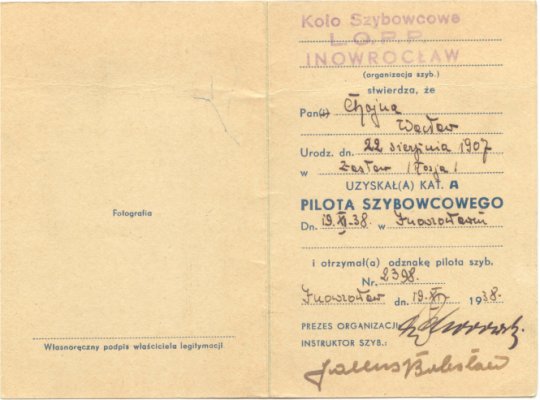 Fotografia
Własnoręczny podpis właściciela legitymacji
Koło Szybowcowe
L.O.P.P.
INOWROCŁAW
(organizacja szyb.)
stwierdza, że
Pan(i) Chojna
Wacław
Urodz. dn. 22 sierpnia 1907
w Zasław /Rosja/
UZYSKAŁ(A) KAT. A
PILOTA SZYBOWCOWEGO
Dn. 19.XI.38. w Inowrocławiu
i otrzymał(a) odznakę pilota szyb.
Nr. 2398.
Inowrocław dn. 19.XI. 1938.
PREZES ORGANIZACJI
INSTRUKTOR SZYB.:
Janusz Bolesław